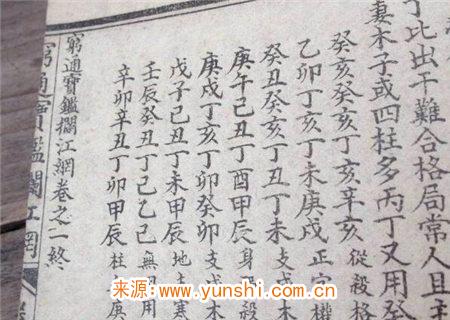 丁比出干難合格局常人且主
妻木子或四柱多丙丁又用癸
癸亥癸亥丁亥辛亥 從殺格
乙卯丁亥丁未庚戌 正官權
癸丑癸亥丁丁未 支成木
庚午己丑丁酉甲辰 身
庚戌丁亥丁卯癸卯 支成
戊子己丑丁未甲辰 地支寒
壬辰癸丑丁巳乙巳 無用
辛卯辛丑丁卯甲辰 柱庚
窮通寶鑑攔江網卷之一終
窮通寶鑑攔江網
来源:www.yunshi.com